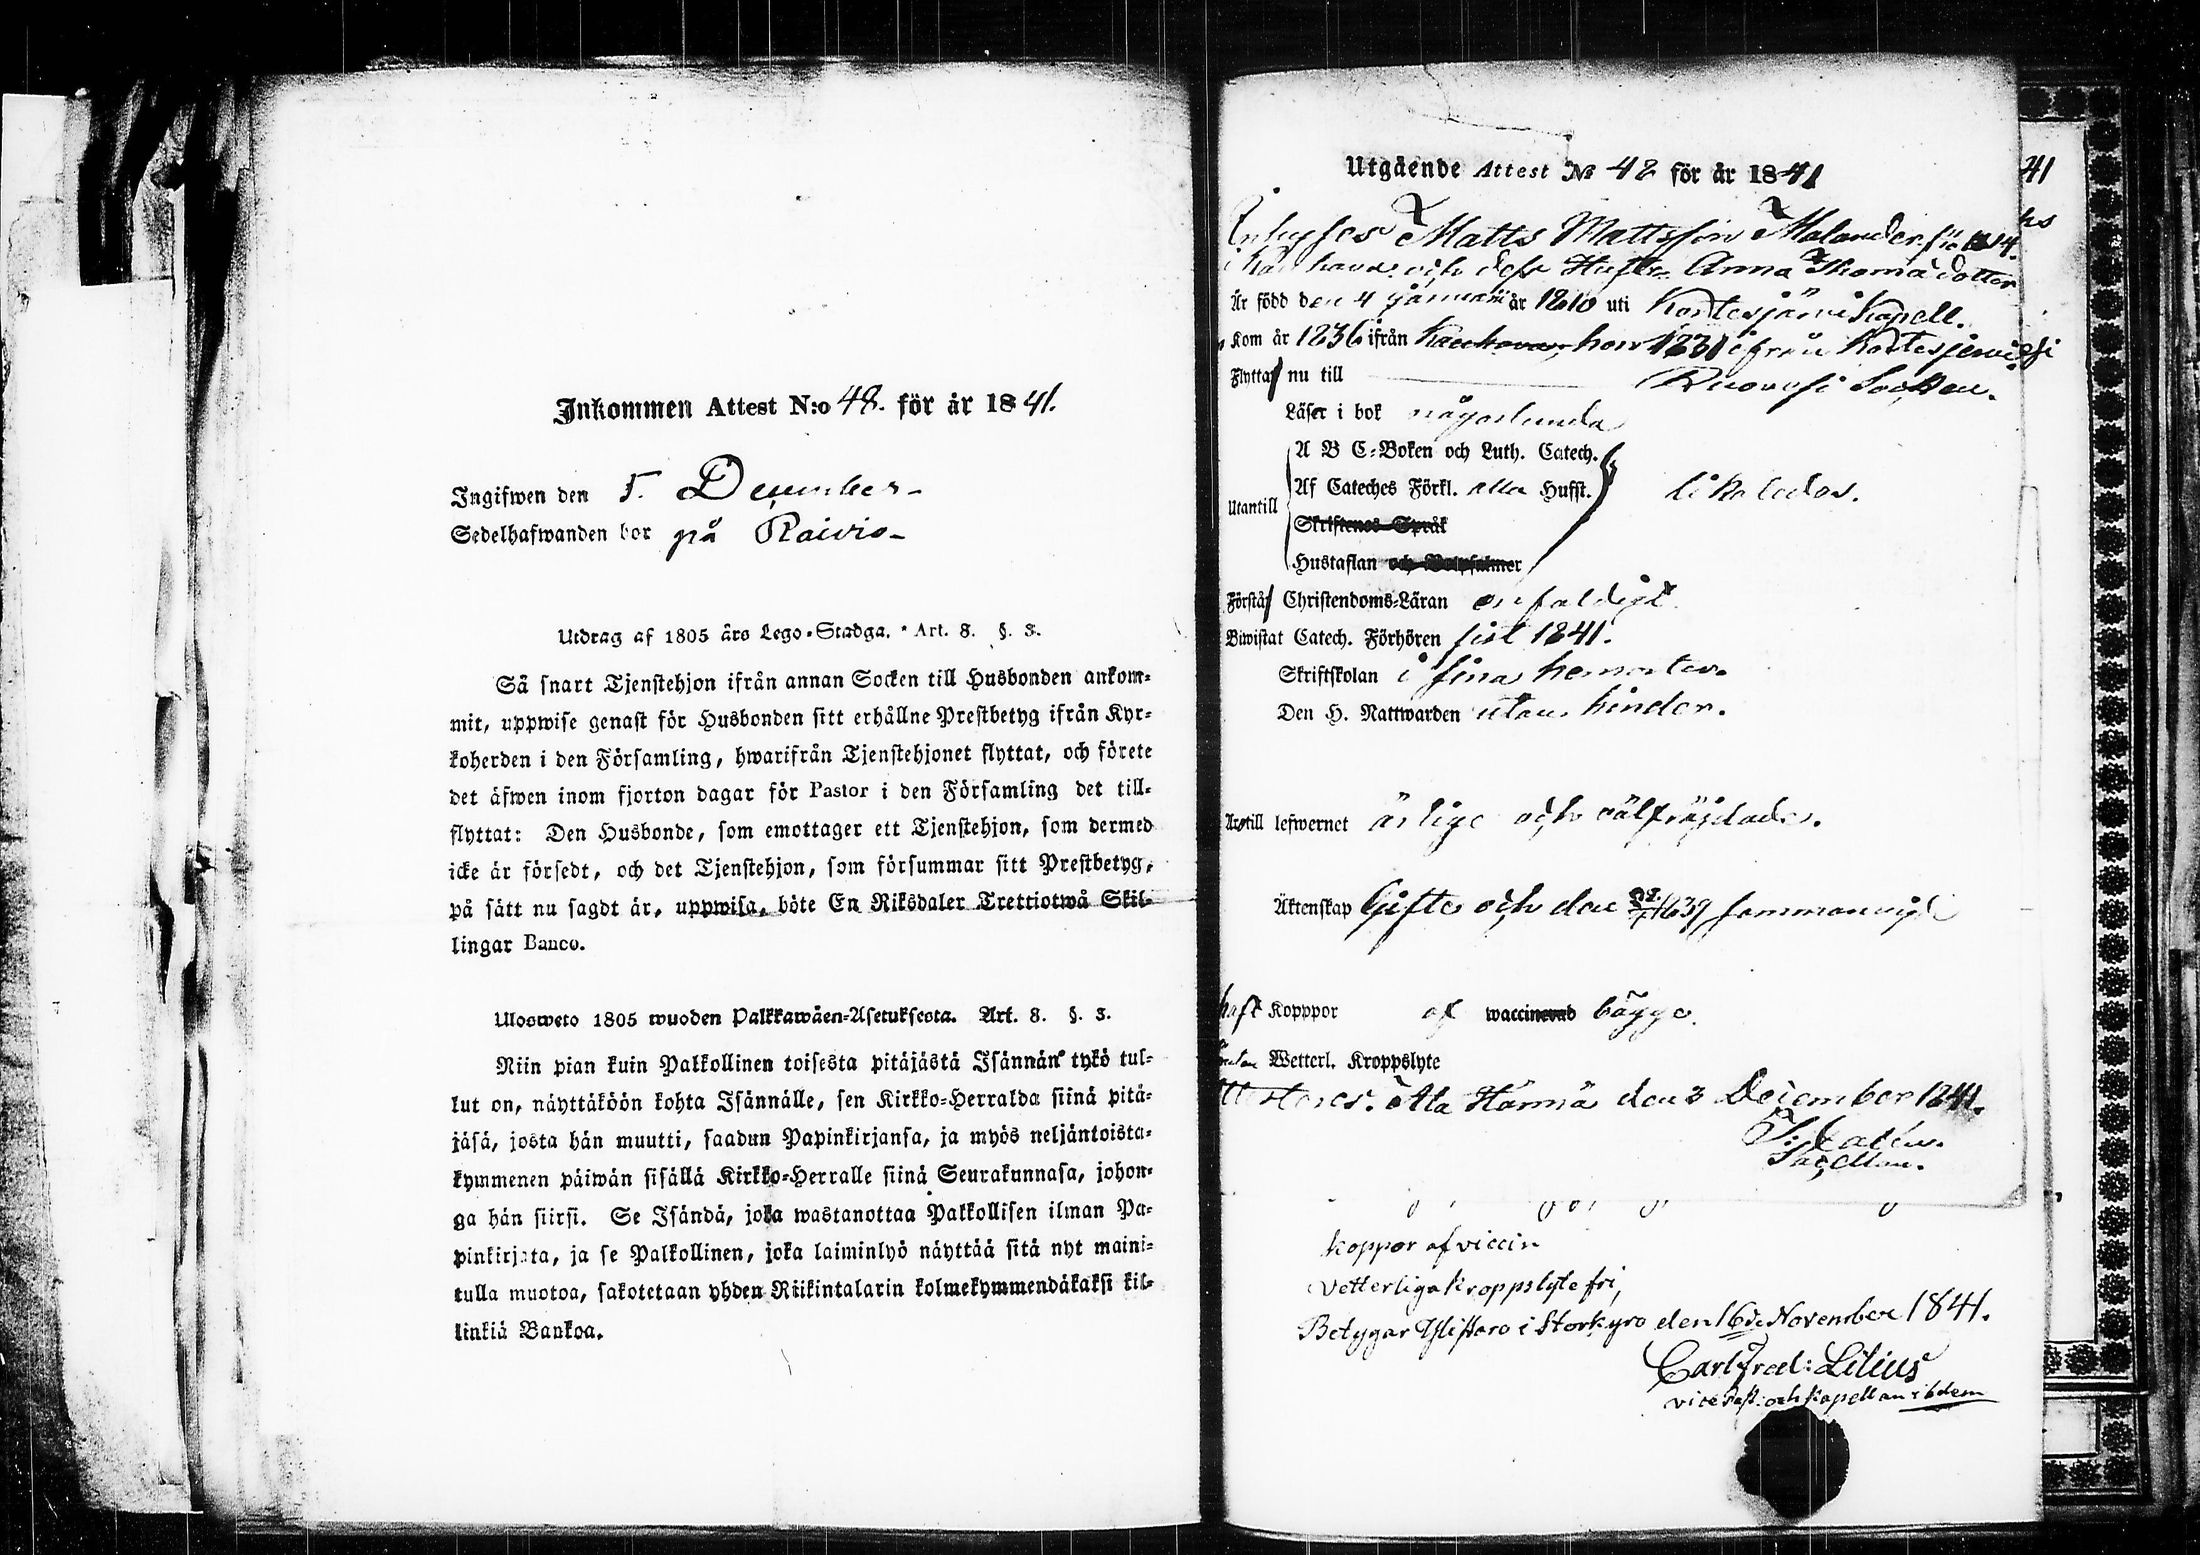 Inkommen Attest N:o 48. för år 1841.
Ingifwen den 5. December
Sedelhafwanden bor på Raivio
Utdrag af 1805 års Lego-Stadga. Art. 8. §. 3.
Så snart Tjenstehjon ifrån annan Socken till Husbonden ankom-
mit, uppwise genast för Husbonden sitt erhållne Prestbetyg ifrån Kyr-
koherden i den Församling, hwarifrån Tjenstehjonet flyttat, och förete
det äfwen inom fjorton dagar för Pastor i den Församling det till-
flyttat: Den Husbonde, som emottager ett Tjenstehjon, som dermed
icke är försedt, och det Tjenstehjon, som försummar sitt Prestbetyg,
på sätt nu sagdt är, uppwisa, böte En Riksdaler Trettiotwå Skil-
lingar Banco.
Ulosweto 1805 wuoden Palkkawäen-Asetuksesta. Art. 8. §. 3.
Niin pian kuin Palkollinen toisesta pitäjästä Isännän tykö tul-
lut on, näyttäköön kohta Isännälle, sen Kirkko-Herralda siinä pitä-
jäsä, josta hän muutti, saadun Papinkirjansa, ja myös neljäntoista-
kymmenen päiwän sisällä Kirkko-Herralle siinä Seurakunnasa, johon-
ga hän siirsi. Se Isändä, joka wastanottaa Palkollisen ilman Pa-
pinkirjata, ja se Palkollinen, joka laiminlyö näyttää sitä nyt maini-
tulla muotoa, sakotetaan yhden Riikintalarin kolmekymmendäkaksi kil-
linkiä Bankoa.
Utgående Attest No 48 för år 1841
41
Inhyses Matts Mattsson Malander föd 1814.
Kauhava och dess Hustr. Anna Thomädotter
Är född den 4 januarii år 1810 uti Kortesjärvi Kapell.
Kom år 1836 ifrån Kauhava, hon 1831 ifrån Kortesjervi
Flytta nu till Kuovosi Socken.
Läser i bok någorlunda
Utantill
A B C-Boken och Luth. Catech.
Af Cateches Förkl. alla Hufst. likaledes.
Skriftenes Språk
Hustaflan och Botpsalmer
Förstå Christendoms-Läran enfaldigt
Biwistat Catech. Förhören sist 1841.
Skriftskolan i sina hemorter.
Den H. Nattwarden utan hinder.
till lefwernet ärlige och välfräjdade.
Äktenskap Gifte och den 1839 sammanvigde
haft Kopppor af waccinerad bägge.
utan Wetterl. Kroppslyte
Attesteras. Ala Härmä den 3 December 1841.
Sacellan.
Koppor af viccin
Vetterliga Kroppslyte fri,
Betygar Ylistaro i Storkyro den 16de November 1841.
Carl Fred: Lilius
vice Past: och Kapellan ibdem